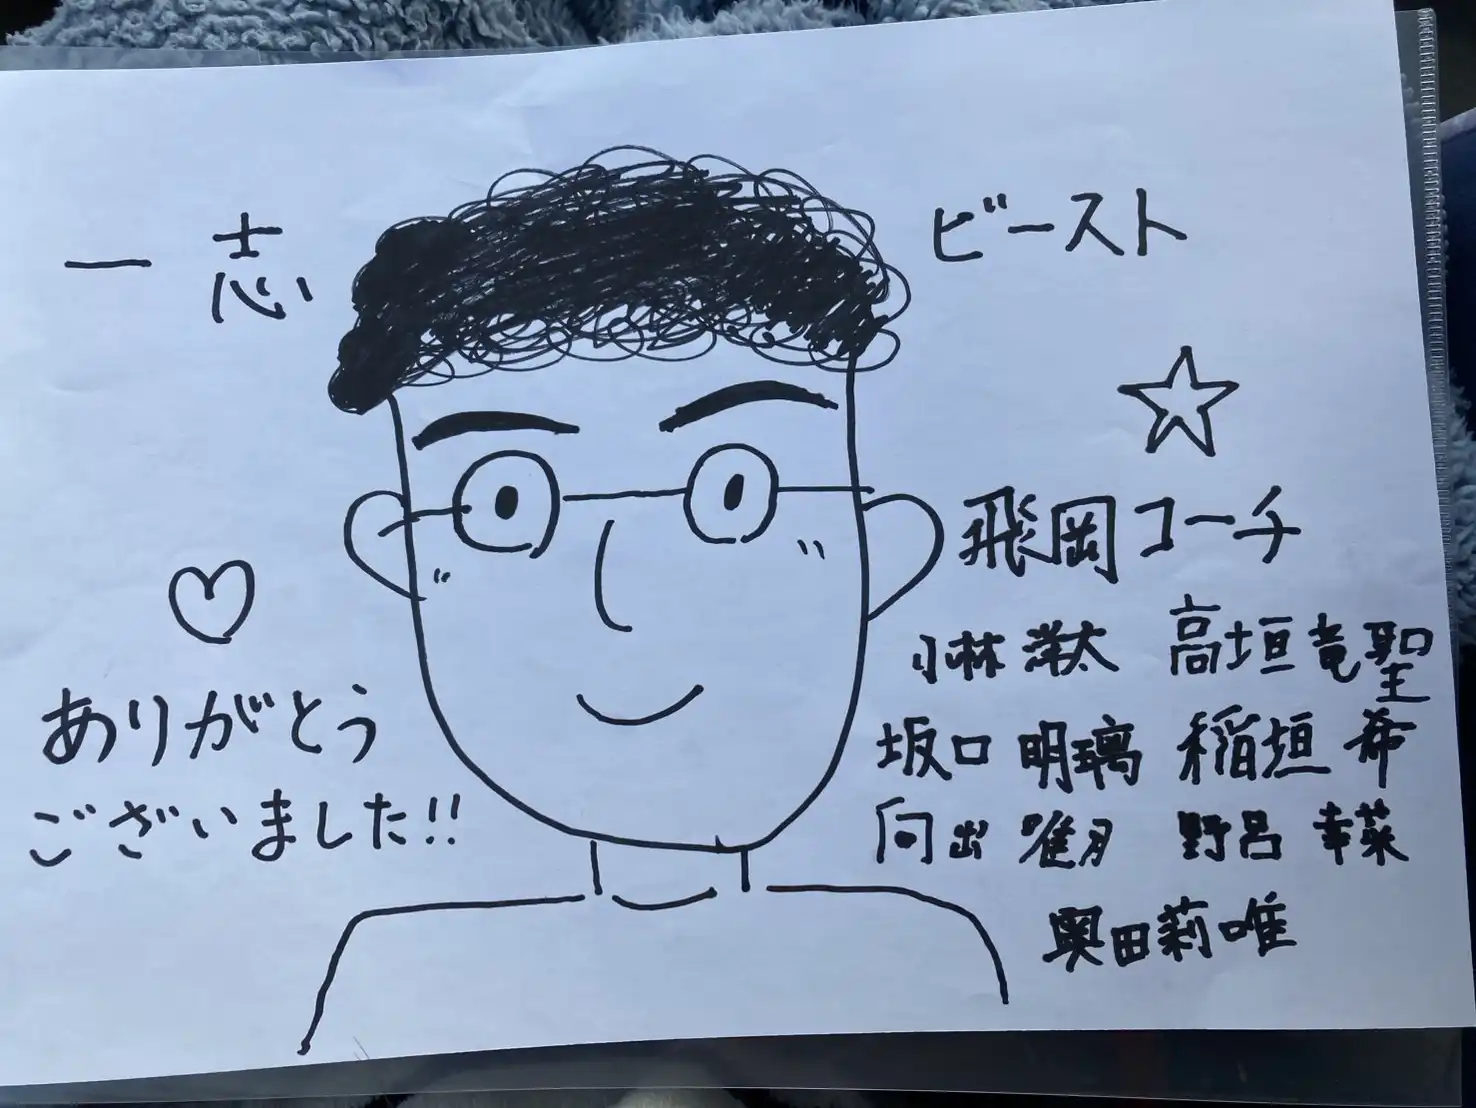 一志
ビースト
飛岡コーチ
小林 洸太 高垣 竜聖
坂口 明璃 稲垣 希
向出 唯月 野呂 幸菜
奥田莉唯
ありがとう
ございました!!